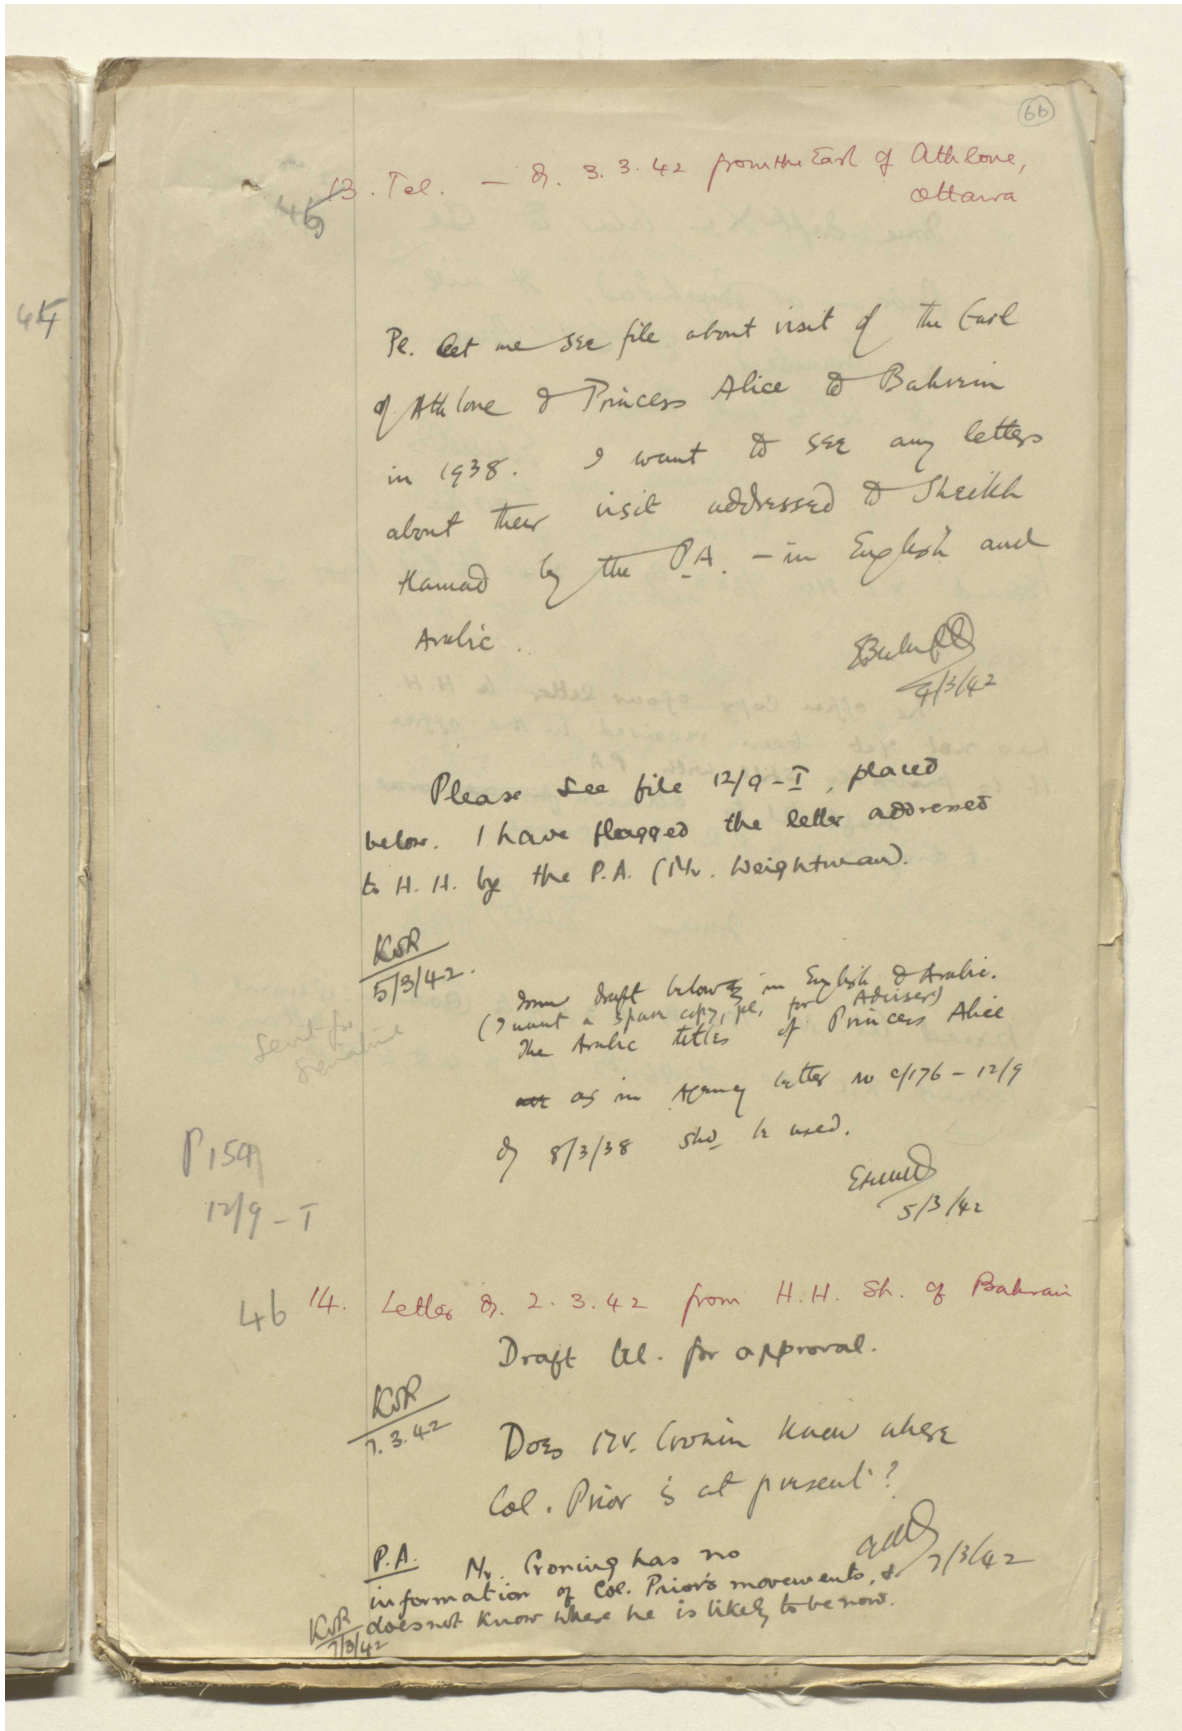 66
13. Tel. — d. 3.3.42 from the Earl of Athlone,
Ottawa
45
Pl. let me see file about visit of the Earl
of Athlone & Princess Alice to Bahrein
in 1938. I want to see any letters
about their visit addressed to Sheikh
Hamad by the P.A. — in English and
Arabic.
4/3/42
Please see file 12/9-I, placed
below. I have flagged the letter addressed
to H.H. by the P.A. (Mr. Weightman).
5/3/42.
Issue draft below in English & Arabic.
(I want a spare copy, pl, for Adviser)
The Arabic titles of Princess Alice
as in Agency letter no c/176-12/9
of 8/3/38 shd be used.
Sent for
signature
P 159
12/9-I
5/3/42
46
14. Letter d. 2.3.42 from H.H. Sh. of Bahrain
Draft tel. for approval.
7.3.42
Does Mr. Cronin know where
Col. Prior is at present?
7/3/42
P.A. Mr. Croning has no
information of Col. Prior's movements, &
does not know where he is likely to be now.
7/3/42